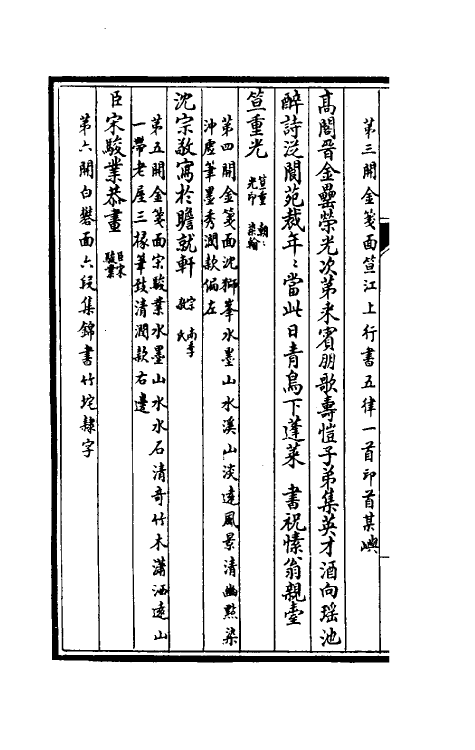 第三開金箋面笪江上行書五律一首印首某嶼
高閣晉金罍榮光次第來賓朋歌專愷子弟集英才酒向瑶池
醉詩從閬苑裁年〻當此日青鳥下蓬萊　書祝愫翁親臺
笪重光 笪重光印 染翰
第四開金箋面沈獅峯水墨山水溪山淡遠風景清幽點染
沖虛筆墨秀潤款偏左
沈宗敬寫於瞻就軒 宗敬 南季氏
第五開金箋面宋駿業水墨山水水石清奇竹木瀟洒遠山
一帶老屋三椽筆致清潤款右邊
臣宋駿業恭畫 臣宋駿業
第六開白礬面六段集錦書竹垞隸字